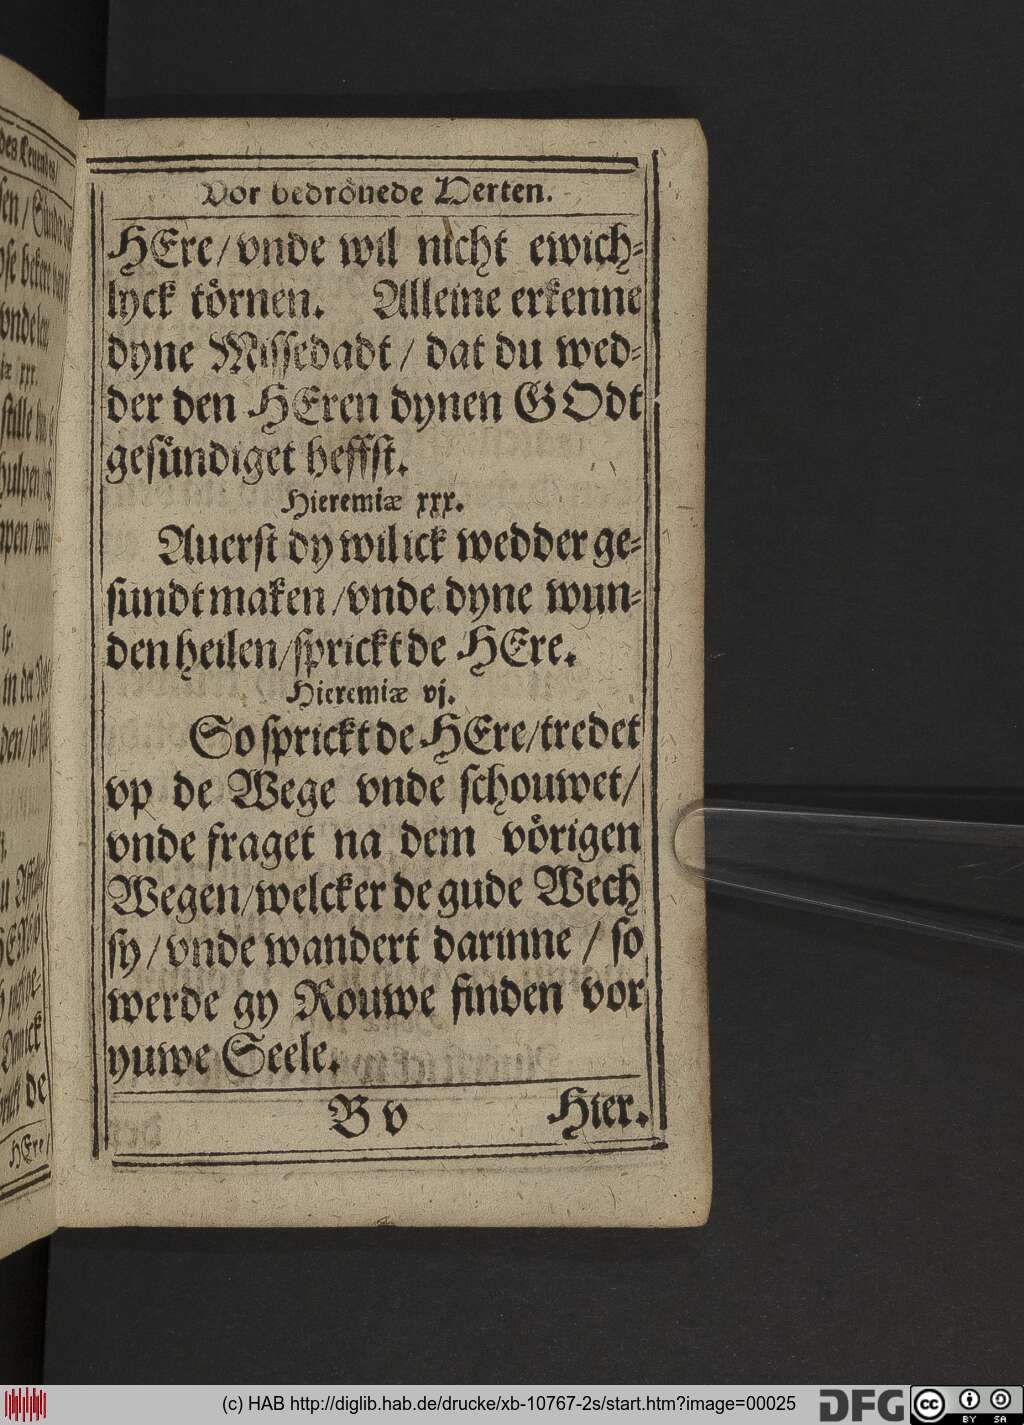 des Leuendes/
Vor bedröuede Herten.
HEre/ vnde wil nicht ewich-
lyck törnen. Alleine erkenne
dyne Missedadt / dat du wed-
der den HEren dynen GOdt
gesündiget heffst.
Hieremiæ xxx.
Auerst dy wil ick wedder ge-
sundt maken /vnde dyne wun-
den heilen/sprickt de HEre.
Hieremiæ vj.
So sprickt de HEre/tredet
vp de Wege vnde schouwet/
vnde fraget na dem vörigen
Wegen/welcker de gude Wech
sy/vnde wandert darinne / so
werde gy Rouwe finden vor
yuwe Seele.
B v Hier.
HEre/
(c) HAB http://diglib.hab.de/drucke/xb-10767-2s/start.htm?image=00025
DFG
cc
BY SA